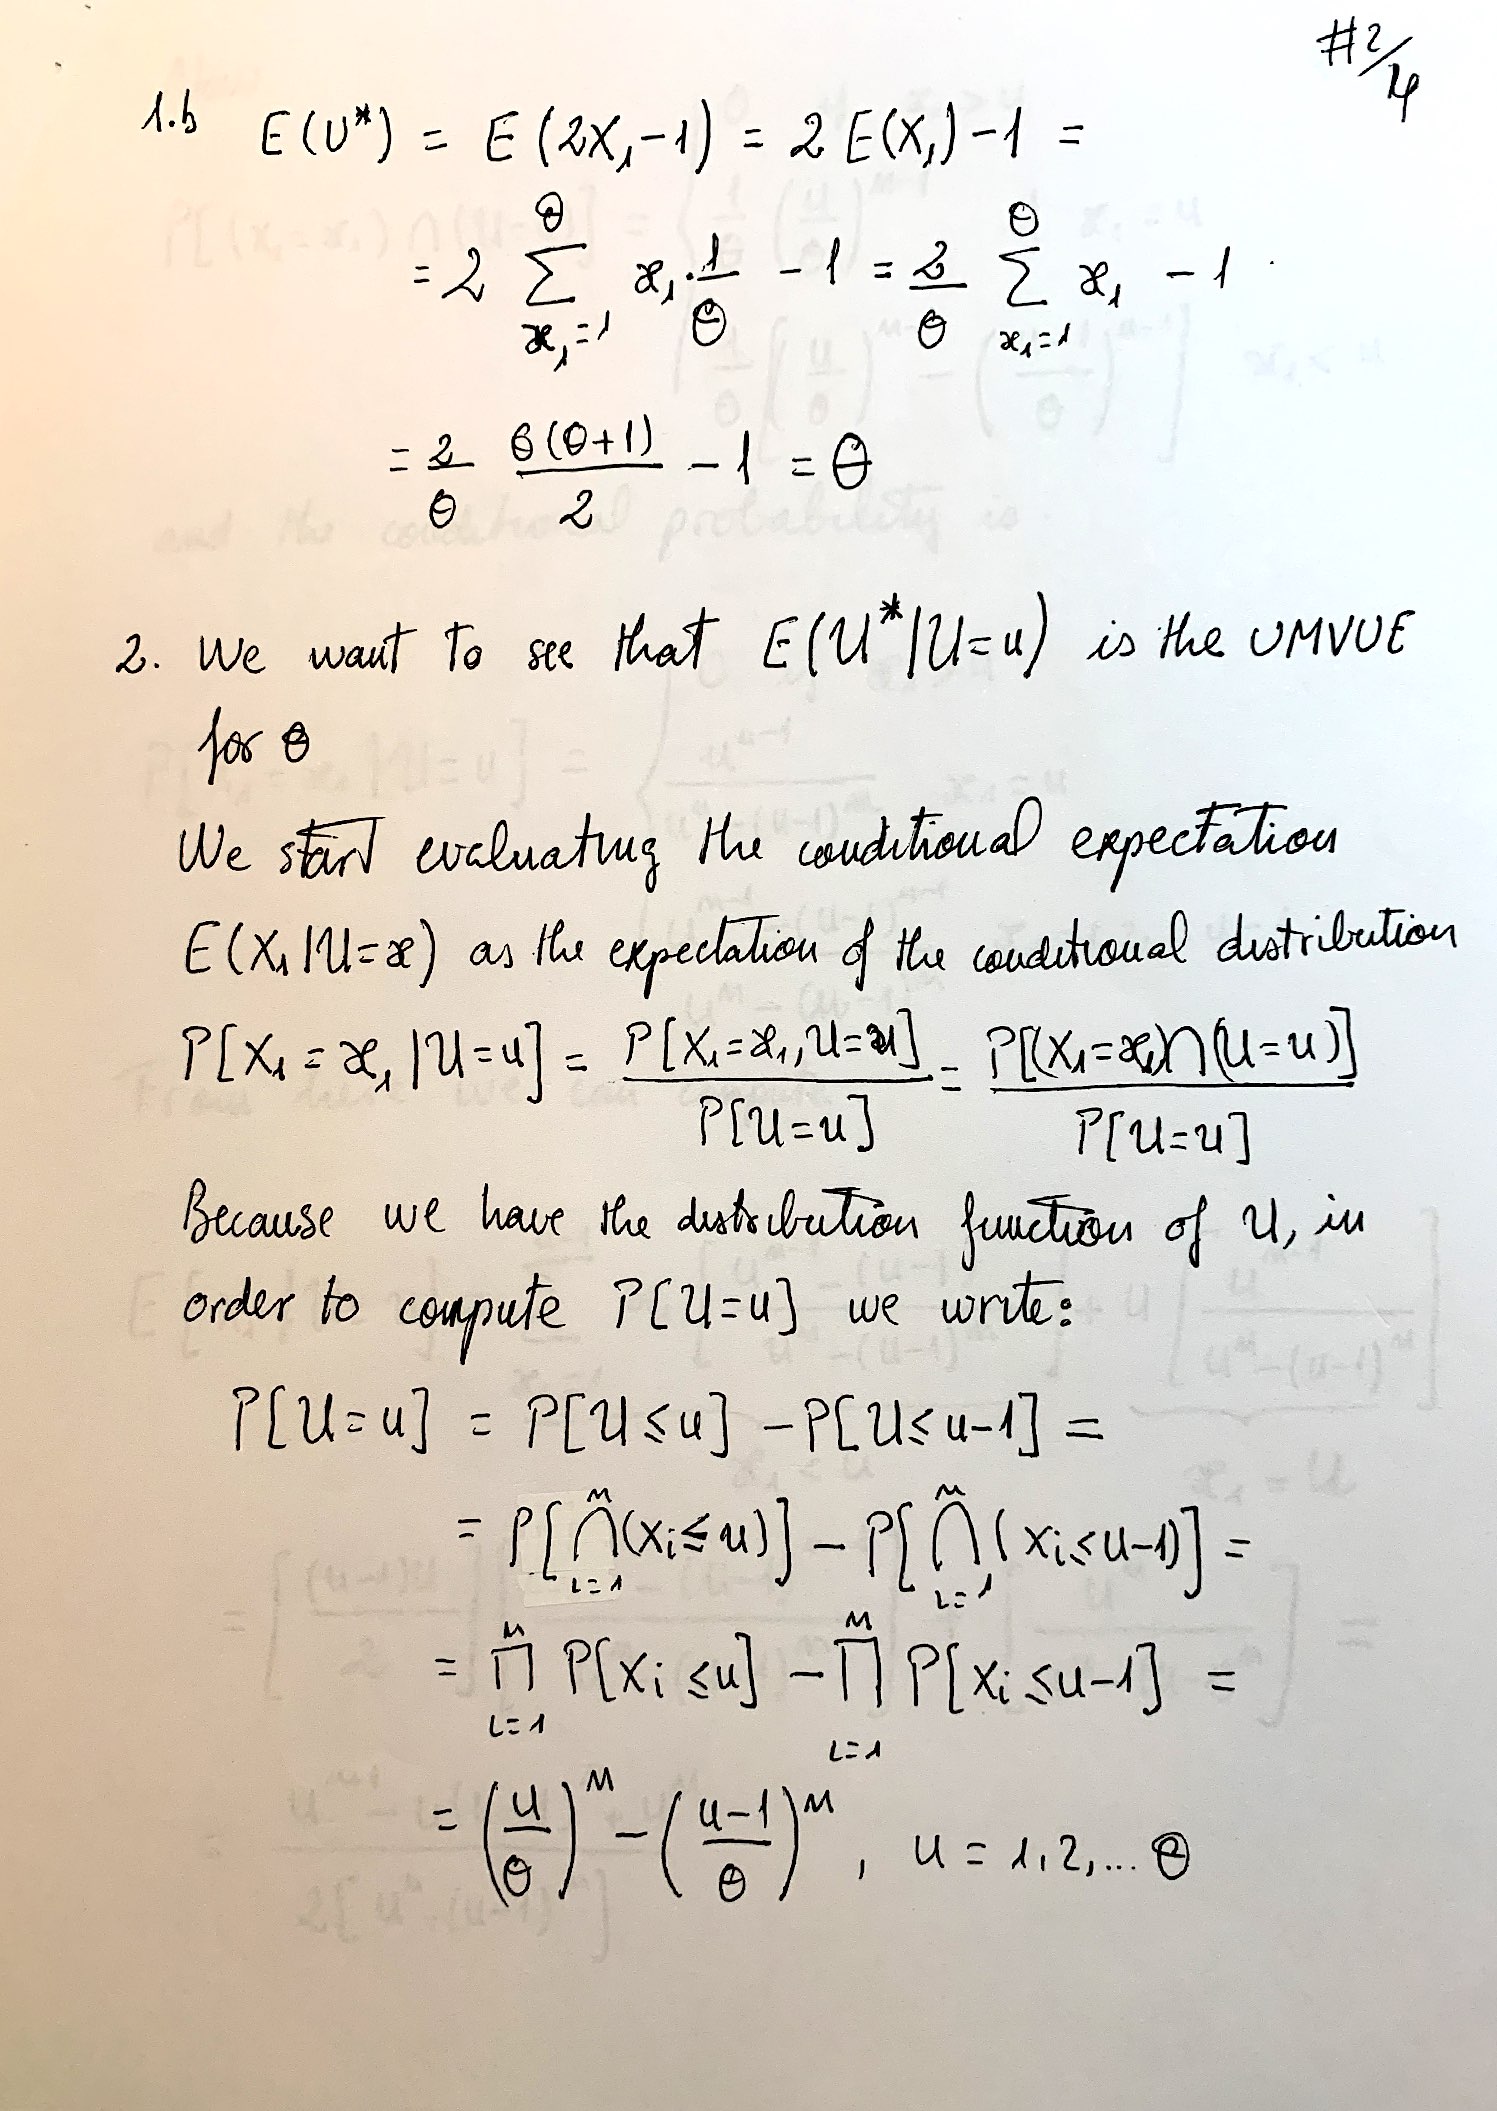 #2/4
1.b E(U*) = E(2X₁-1) = 2E(X₁)-1 =
= 2 \sum_{x₁=1}^{θ} x₁·\frac{1}{θ} - 1 = \frac{2}{θ} \sum_{x₁=1}^{θ} x₁ - 1
= \frac{2}{θ} \frac{θ(θ+1)}{2} - 1 = θ
2. We want to see that E(U*|U=u) is the UMVUE
for θ
We start evaluating the conditional expectation
E(X₁|U=x) as the expectation of the conditional distribution
P[X₁=x₁|U=u] = \frac{P[X₁=x₁,U=u]}{P[U=u]} = \frac{P[(X₁=x₁)∩(U=u)]}{P[U=u]}
Because we have the distribution function of U, in
order to compute P[U=u] we write:
P[U=u] = P[U≤u] - P[U≤u-1] =
= P[\bigcap_{i=1}^{n}(X_i≤u)] - P[\bigcap_{i=1}^{n}(X_i≤u-1)] =
= \prod_{i=1}^{n} P[X_i≤u] - \prod_{i=1}^{n} P[X_i≤u-1] =
= (\frac{u}{θ})^n - (\frac{u-1}{θ})^n, u = 1,2,... θ